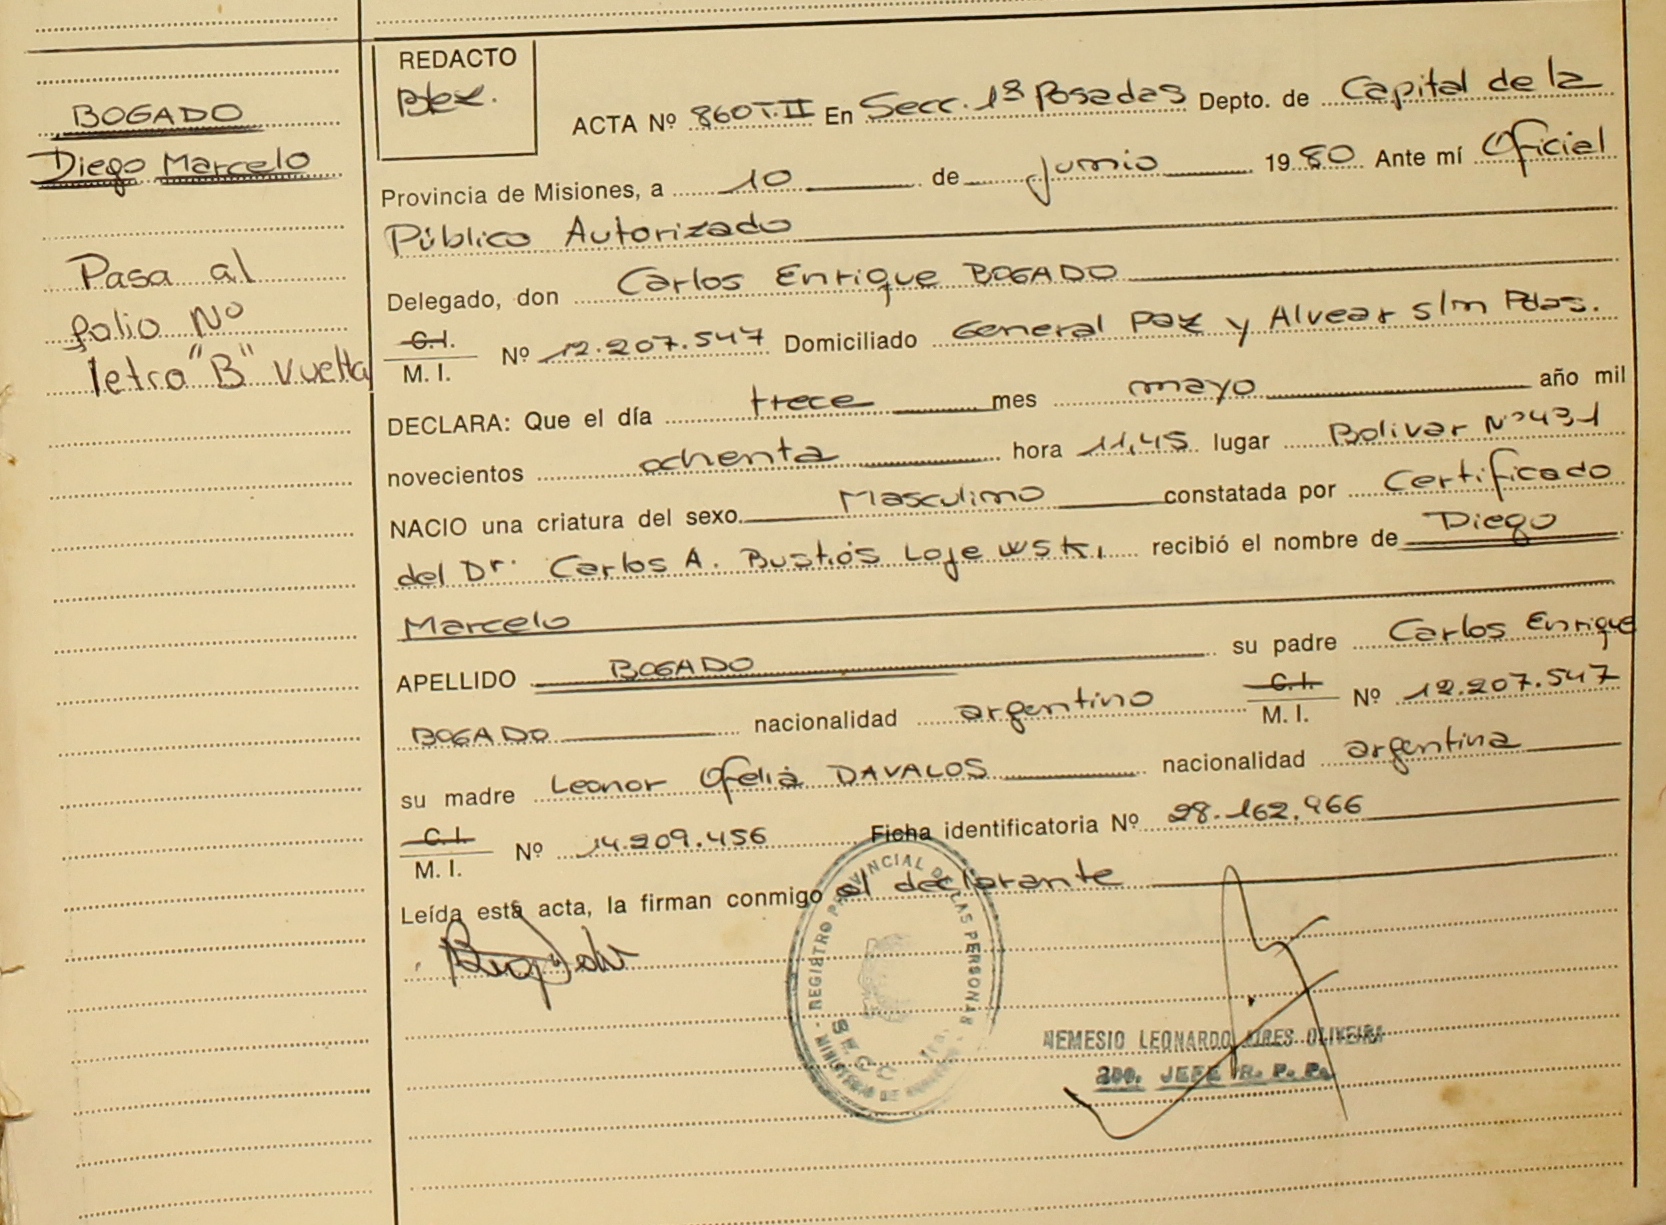 BOGADO
Diego Marcelo
Pasa al
folio Nº
letra "B" Vuelta
REDACTO
ACTA Nº 860 T.II En Secc. 1ª Posadas Depto. de Capital de la
Provincia de Misiones, a 10 de junio 1980 Ante mí Oficial
Público Autorizado
Delegado, don Carlos Enrique BOGADO
C.I.
M. I. Nº 12.207.547 Domiciliado General Paz y Alvear s/n Pdas.
DECLARA: Que el día trece mes mayo año mil
novecientos ochenta hora 11,45 lugar Bolivar Nº 431
NACIO una criatura del sexo Masculino constatada por Certificado
del Dr. Carlos A. Bustos Lojewski recibió el nombre de Diego
Marcelo
APELLIDO BOGADO su padre Carlos Enrique
BOGADO nacionalidad argentino C.I. M. I. Nº 12.207.547
su madre Leonor Ofelia DAVALOS nacionalidad argentina
C.I.
M. I. Nº 14.209.456 Ficha identificatoria Nº 28.162.966
Leída está acta, la firman conmigo el declarante
REGISTRO PROVINCIAL DE LAS PERSONAS
SECC. 1ra.
MINISTERIO DE
NEMESIO LEONARDO AIRES OLIVEIRA
2do. JEFE R. P. P.